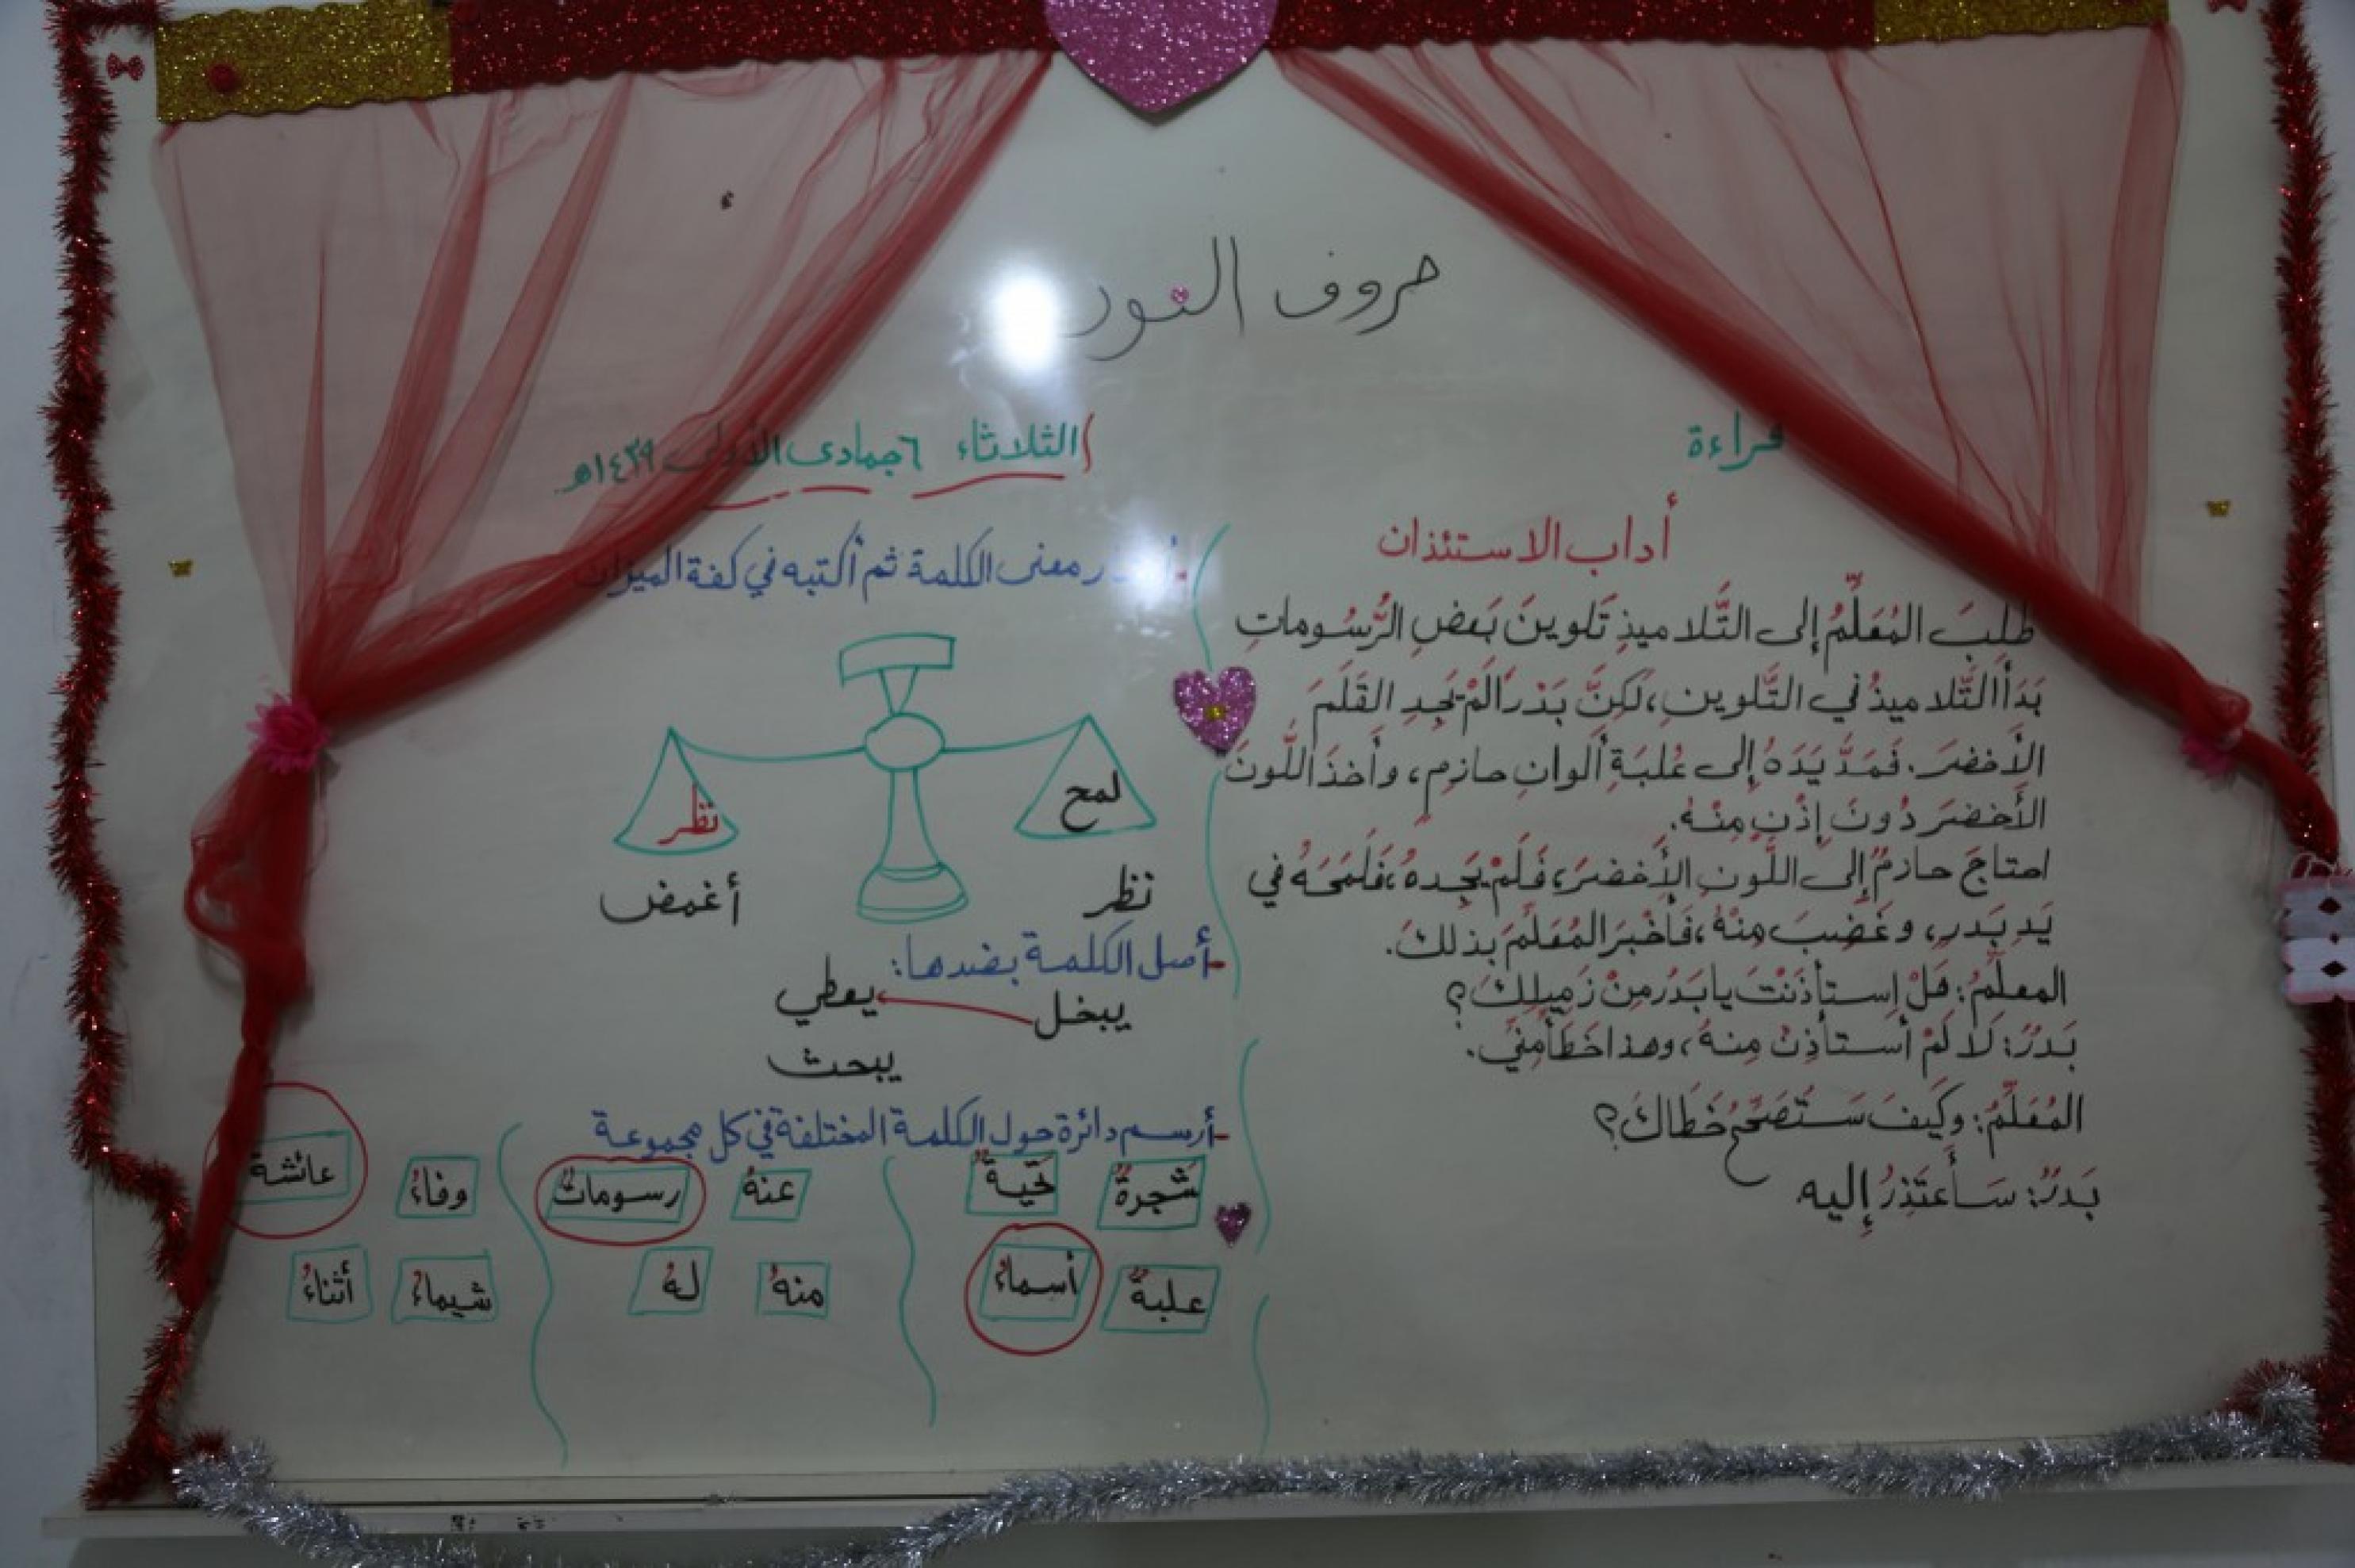 حروف النور
قراءة
الثلاثاء ٦ جمادى الأولى ١٤٣٩هـ
أداب الاستئذان
طَلَبَ المُعَلِّمُ إلى التَّلاميذِ تَلوينَ بَعضِ الرُّسُوماتِ
بَدَأَ التَّلاميذُ في التَّلوينِ، لَكِنَّ بَدْرًا لَمْ يَجِدِ القَلَمَ
الأَخضَرَ. فَمَدَّ يَدَهُ إلى عُلبَةِ ألوانِ حازمٍ، وأَخذَ اللَّونَ
الأَخضَرَ دُونَ إذْنٍ مِنْهُ.
احتاجَ حازمٌ إلى اللَّونِ الأَخضَرَ، فَلَمْ يَجِدهُ، فَلَمَحَهُ في
يَدِ بَدرٍ، وغَضِبَ مِنْهُ، فَأَخْبَرَ المُعَلِّمَ بذلكَ.
المعلِّمُ: هَلْ إستأذَنْتَ يا بَدرُ مِنْ زَميلِكَ؟
بَدرٌ: لَا لَمْ أستأذِنْ مِنهُ، وهذا خَطَأٌ مِنِّي.
المُعَلِّمُ: وكَيفَ سَتُصَحِّحُ خَطَاكَ؟
بَدرٌ: سَأَعتَذِرُ إليه
ر معنى الكلمة ثم أكتبه في كفة الميزان
لمح
نظر
نظر
أغمض
- أصل الكلمة بضدها:
يبخل
يعطي
يبحث
- أرسم دائرة حول الكلمة المختلفة في كل مجموعة
شجرةٌ
تحيةٌ
عنهُ
رسوماتٌ
وفاءُ
عائشة
علبةٌ
أسماءُ
منهُ
لهُ
شيماءُ
أثناءُ